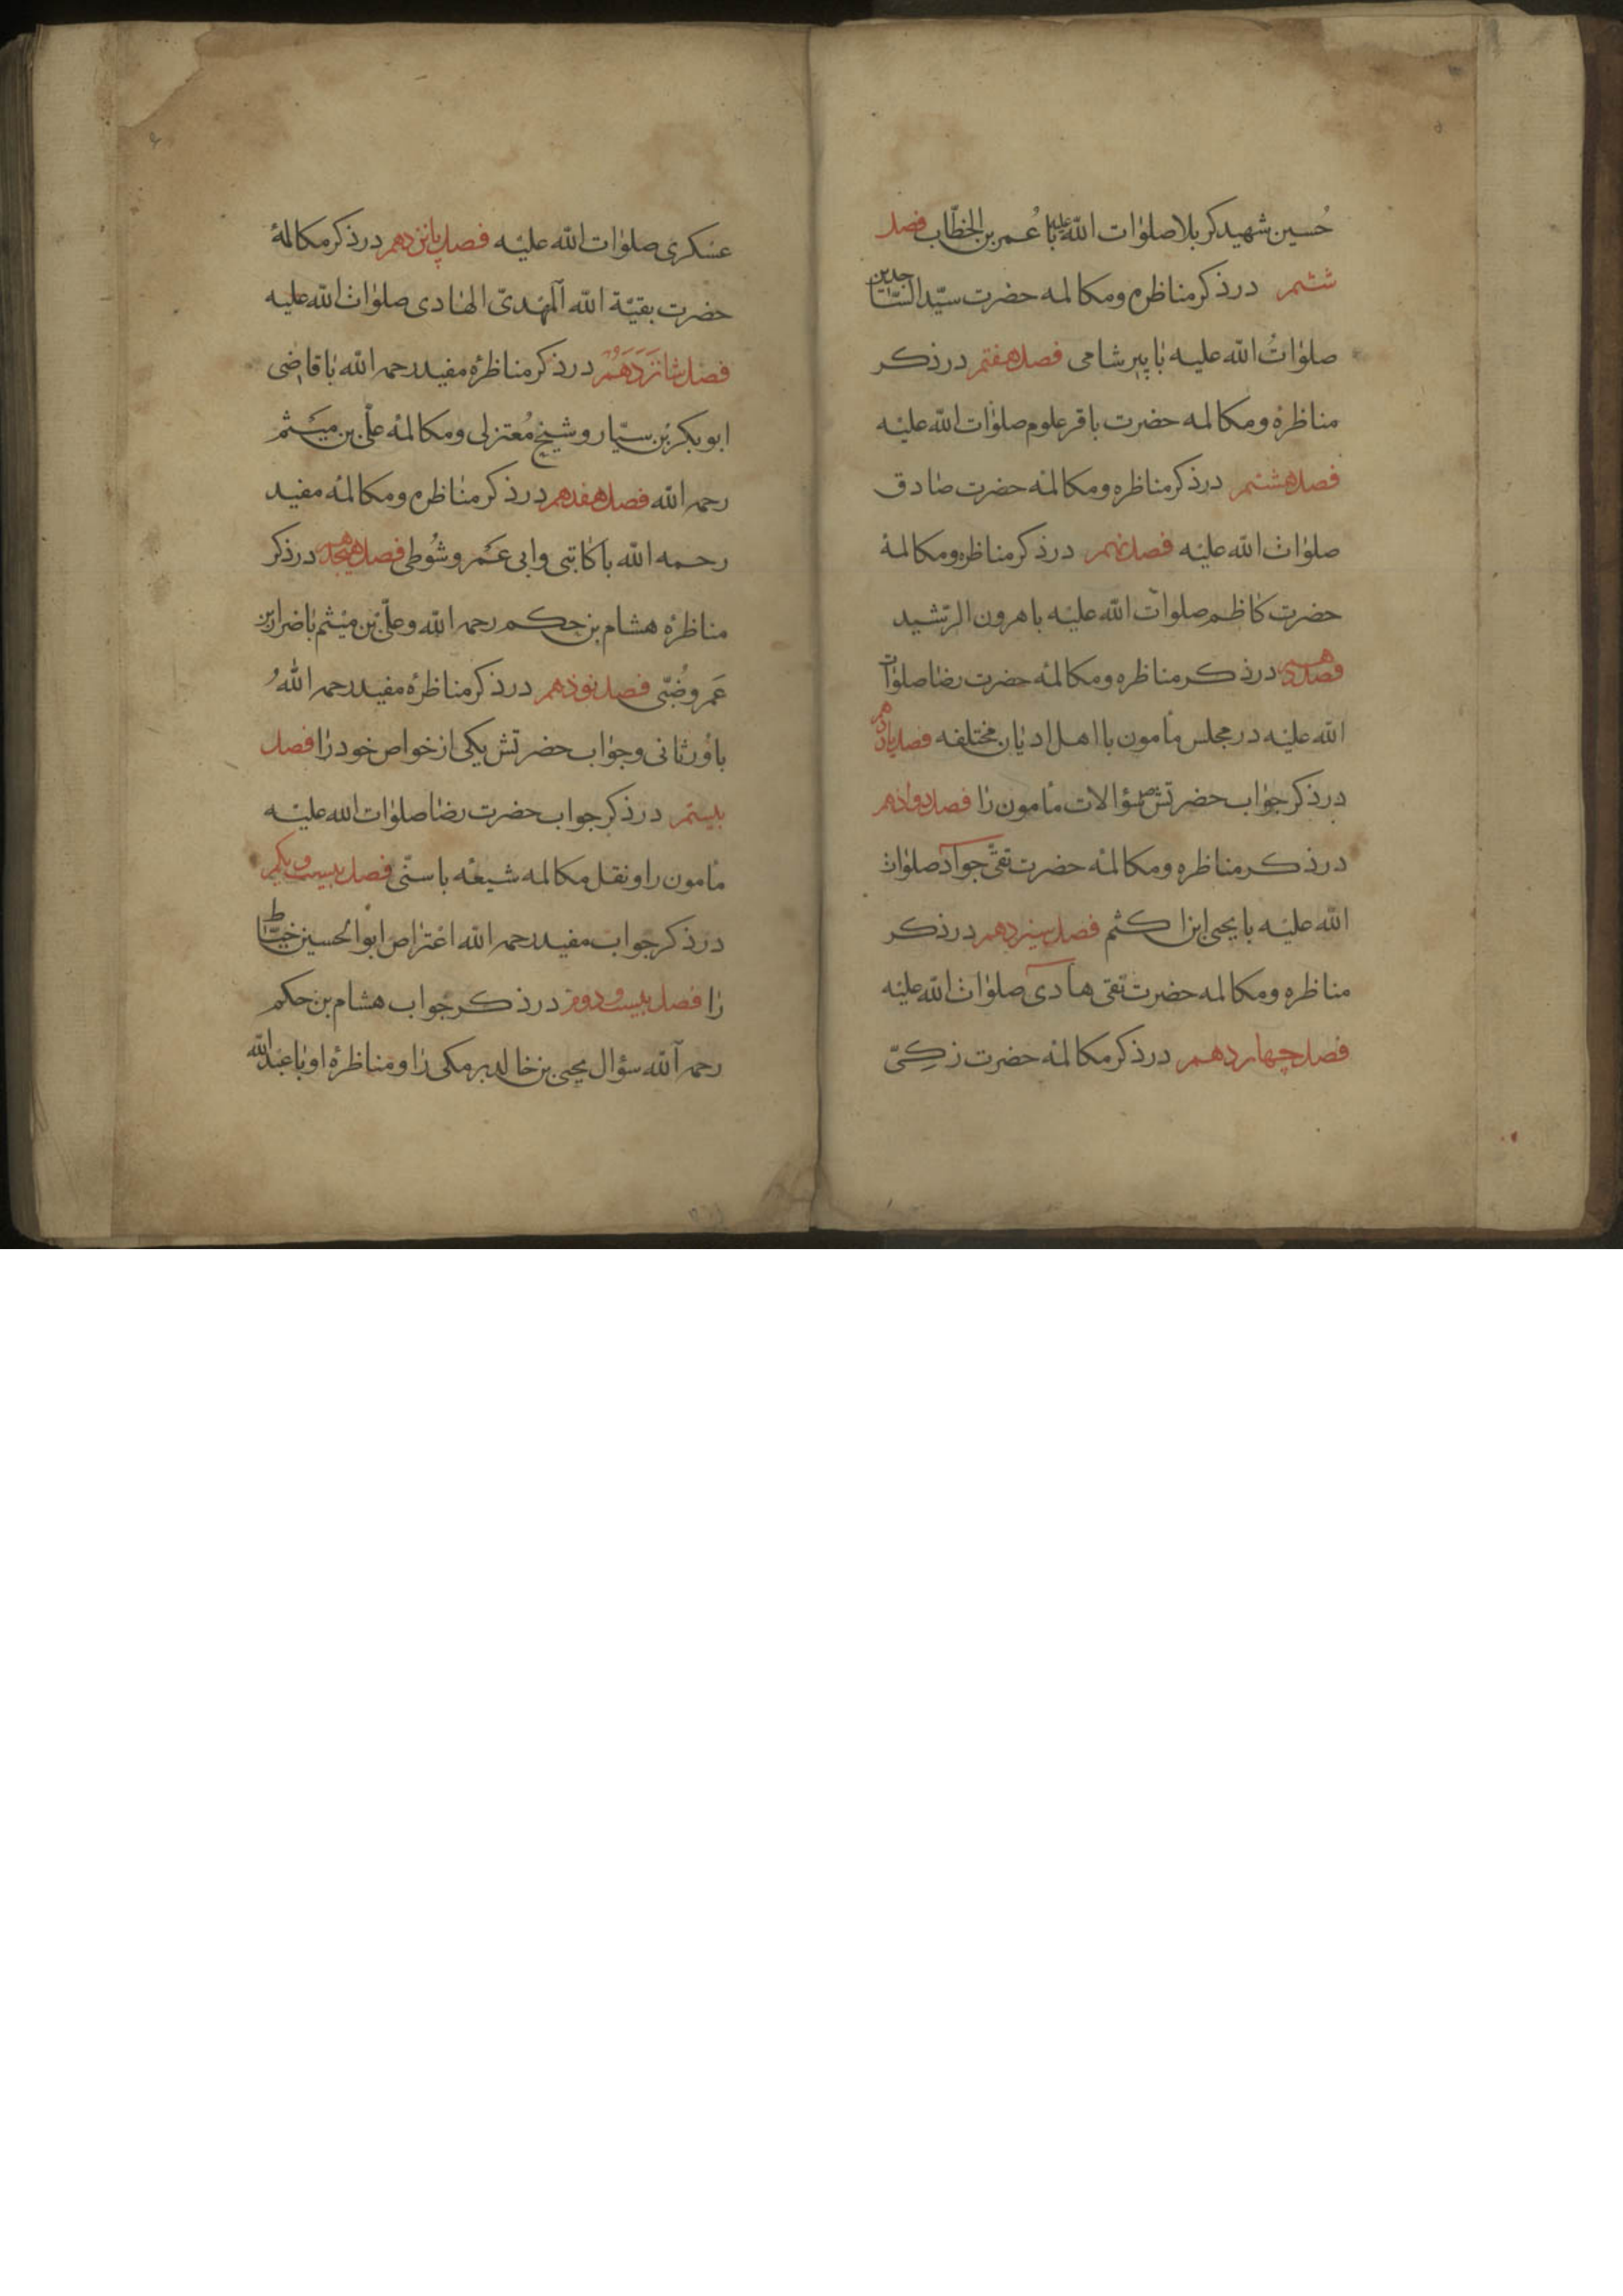 حسین شهید کربلا صلوات الله علیه با عمر بن الخطاب فصل
ششم در ذکر مناظره و مکالمه حضرت سید الساجدین
صلوات الله علیه با پیر شامی فصل هفتم در ذکر
مناظره و مکالمه حضرت باقر علوم صلوات الله علیه
فصل هشتم در ذکر مناظره و مکالمه حضرت صادق
صلوات الله علیه فصل نهم در ذکر مناظره و مکالمه
حضرت کاظم صلوات الله علیه با هرون الرشید
فصل دهم در ذکر مناظره و مکالمه حضرت رضا صلوات
الله علیه در مجلس مأمون با اهل ادیان مختلفه فصل یازدهم
در ذکر جواب حضرتش سؤالات مأمون را فصل دوازدهم
در ذکر مناظره و مکالمه حضرت تقی جواد صلوات
الله علیه با یحیی ابن اکثم فصل سیزدهم در ذکر
مناظره و مکالمه حضرت نقی هادی صلوات الله علیه
فصل چهاردهم در ذکر مکالمه حضرت زکی
عسکری صلوات الله علیه فصل پانزدهم در ذکر مکالمه
حضرت بقیة الله المهدی الهادی صلوات الله علیه
فصل شانزدهم در ذکر مناظره مفید رحمه الله با قاضی
ابو بکر بن سیار و شیخ معتزلی و مکالمه علی بن میثم
رحمه الله فصل هفدهم در ذکر مناظره و مکالمه مفید
رحمه الله با کاتبی و ابی عمر و شوطی فصل هیجدهم در ذکر
مناظره هشام بن حکم رحمه الله و علی بن میثم با ضرار بن
عمر و ضبی فصل نوزدهم در ذکر مناظره مفید رحمه الله
با ورثانی و جواب حضرتش یکی از خواص خود را فصل
بیستم در ذکر جواب حضرت رضا صلوات الله علیه
مأمون را و نقل مکالمه شیعه با سنی فصل بیست و یکم
در ذکر جواب مفید رحمه الله اعتراض ابو الحسین خیاط
را فصل بیست و دوم در ذکر جواب هشام بن حکم
رحمه الله سؤال یحیی بن خالد برمکی را و مناظره او با عبد الله